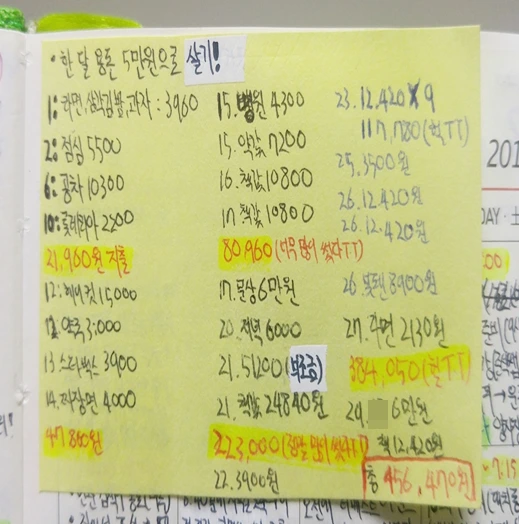 · 한 달 용돈 5만원으로 살기!
1: 라면, 삼각김밥, 과자 : 3960
2: 점심 5500
6: 공차 10300
10: 롯데리아 2200
21,960원 지출
12: 헤어컷 15,000
12: 약국 3,000
13 스타벅스 3900
14. 짜장면 4000
47,860원
15. 병원 4300
15. 약값 7200
16. 책값 10800
17. 책값 10800
80,960 (너무 많이 썼다 TT)
17. 6만원
20. 저녁 6000
21. 51200 (보조금)
21. 책값 24840원
223,000 (정말 많이 썼다 T
22. 3900원
23. 12,420 x 9
117,780 (헉 TT)
25. 3500원
26. 12,420원
26. 12,420원
26 8900원
27. 라면 2130원
384,050 (헐 TT)
29. 6만원
책 12,420원
총 456,470원
201
DAY · 土
00
7.15